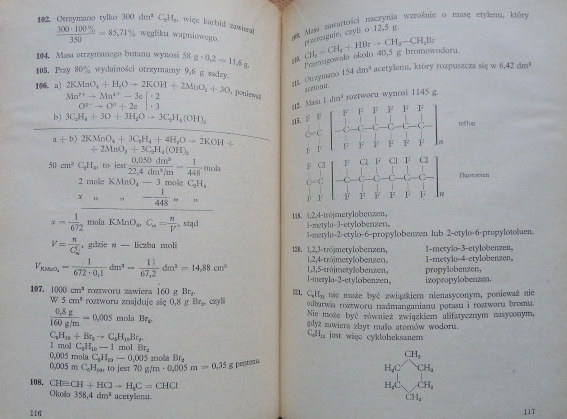 102. Otrzymano tylko 300 dm³ C₂H₂, więc karbid zawierał
300 · 100% / 350 = 85,71% węgliku wapniowego.
104. Masa otrzymanego butanu wynosi 58 g · 0,2 = 11,6 g.
105. Przy 80% wydajności otrzymamy 9,6 g sadzy.
106. a) 2KMnO₄ + H₂O → 2KOH + 2MnO₂ + 3O, ponieważ
Mn⁷⁺ → Mn⁴⁺ — 3e | · 2
O⁰ → O²⁻ + 2e | · 3
b) 3C₂H₄ + 3O + 3H₂O → 3C₂H₄(OH)₂
a + b) 2KMnO₄ + 3C₂H₄ + 4H₂O → 2KOH +
+ 2MnO₂ + 3C₂H₄(OH)₂
50 cm³ C₂H₄, to jest 0,050 dm³ / 22,4 dm³/m = 1/448 mola
2 mole KMnO₄ — 3 mole C₂H₄
x „ „ — 1/448 „ „
x = 1/672 mola KMnO₄, Cₘ = n/V, stąd
V = n/Cₘ, gdzie n — liczba moli
V KMnO₄ = 1 / 672 · 0,1 dm³ = 1 / 67,2 dm³ = 14,88 cm³
107. 1000 cm³ roztworu zawiera 160 g Br₂.
W 5 cm³ roztworu znajduje się 0,8 g Br₂, czyli
0,8 g / 160 g/m = 0,005 mola Br₂.
C₅H₁₀ + Br₂ → C₅H₁₀Br₂.
1 mol C₅H₁₀ — 1 mol Br₂
0,005 mola C₅H₁₀ — 0,005 mola Br₂
0,005 m C₅H₁₀, to jest 70 g/m · 0,005 m = 0,35 g pentenu
108. CH≡CH + HCl → H₂C = CHCl
Około 358,4 dm³ acetylenu.
116
109. Masa zawartości naczynia wzrośnie o masę etylenu, który
przereaguje, czyli o 12,5 g.
110. CH₂ = CH₂ + HBr → CH₃—CH₂Br
Przereagowało około 40,5 g bromowodoru.
111. Otrzymano 154 dm³ acetylenu, który rozpuszcza się w 6,42 dm³
acetonu.
112. Masa 1 dm³ roztworu wynosi 1145 g.
113.
F F F F F F F F
C=C —C—C—C—C—C—C— teflon
F F F F F F F F n
F Cl F Cl F Cl F Cl
C=C —C—C—C—C—C—C—
F F F F F F F F n
118. 1,2,4-trójmetylobenzen,
1-metylo-3-etylobenzen,
1-metylo-2-etylo-6-propylobenzen lub 2-etylo-6-propylotoluen.
120. 1,2,3-trójmetylobenzen, 1-metylo-3-etylobenzen,
1,2,4-trójmetylobenzen, 1-metylo-4-etylobenzen,
1,3,5-trójmetylobenzen, propylobenzen,
1-metylo-2-etylobenzen, izopropylobenzen.
121. C₆H₁₂ nie może być związkiem nienasyconym, ponieważ nie
odbarwia roztworu nadmanganianu potasu i roztworu bromu.
Nie może być również związkiem alifatycznym nasyconym,
gdyż zawiera zbyt mało atomów wodoru.
C₆H₁₂ jest więc cykloheksanem
CH₂
H₂C CH₂
H₂C CH₂
CH₂
117